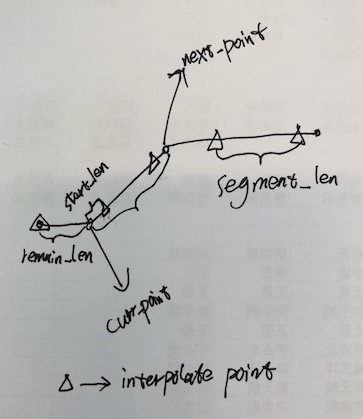 next_point
start_len
segment_len
remain_len
curr_point
△ → interpolate point